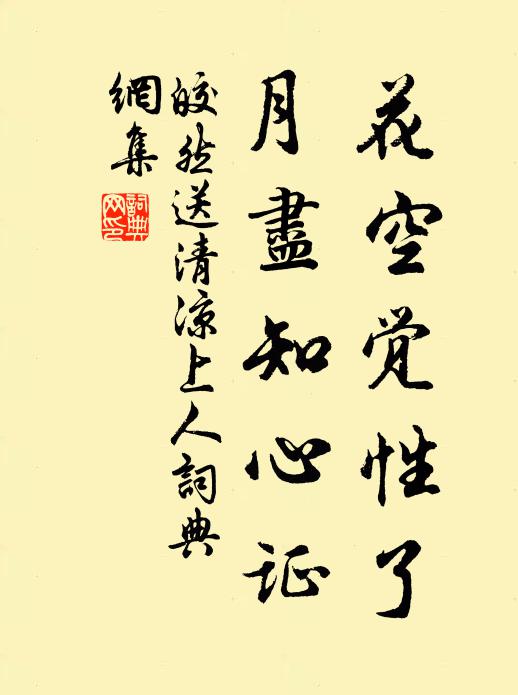 花空觉性了
月盡知心证
皎然送清凉上人詞典
網集
詞典网印